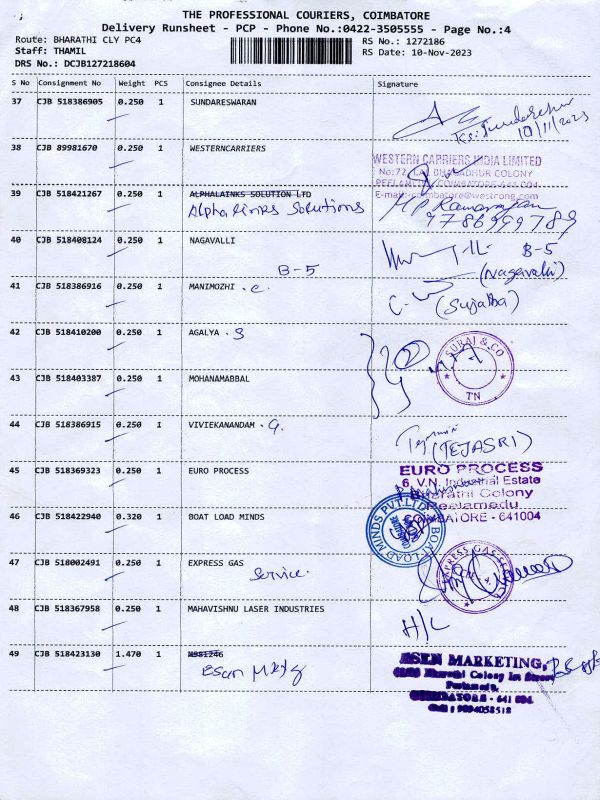 THE PROFESSIONAL COURIERS, COIMBATORE
Delivery Runsheet - PCP - Phone No.:0422-3505555 - Page No.:4
Route: BHARATHI CLY PC4
RS No.: 1272186
Staff: THAMIL
RS Date: 10-Nov-2023
DRS No.: DCJB127218604
S No Consignment No Weight PCS Consignee Details Signature
37 CJB 518386905 0.250 1 SUNDARESWARAN
10/11/2023
38 CJB 89981670 0.250 1 WESTERNCARRIERS
WESTERN CARRIERS INDIA LIMITED
COLONY
39 CJB 518421267 0.250 1 ALPHALINKS SOLUTION LTD
Alphalinks Solutions
9786999789
40 CJB 518408124 0.250 1 NAGAVALLI
B-5
B-5
(Nagavalli)
41 CJB 518386916 0.250 1 MANIMOZHI . C.
(Sujatha)
42 CJB 518410200 0.250 1 AGALYA . S
SURAJ & CO
TN
43 CJB 518403387 0.250 1 MOHANAMABBAL
44 CJB 518386915 0.250 1 VIVIEKANANDAM . G.
(TEJASRI)
45 CJB 518369323 0.250 1 EURO PROCESS
EURO PROCESS
6, V.N. Industrial Estate
Bharathi Colony
Peelamedu
COIMBATORE - 641004
46 CJB 518422940 0.320 1 BOAT LOAD MINDS
BOAT LOAD MINDS PVT.LTD
47 CJB 518002491 0.250 1 EXPRESS GAS
Service.
EXPRESS GAS
48 CJB 518367958 0.250 1 MAHAVISHNU LASER INDUSTRIES
H/L
49 CJB 518423130 1.470 1 N981246
Esen Mktg
ESEN MARKETING,
Bharathi Colony Ist Street
Peelamedu,
COIMBATORE - 641 004.
Cell : 9894058512